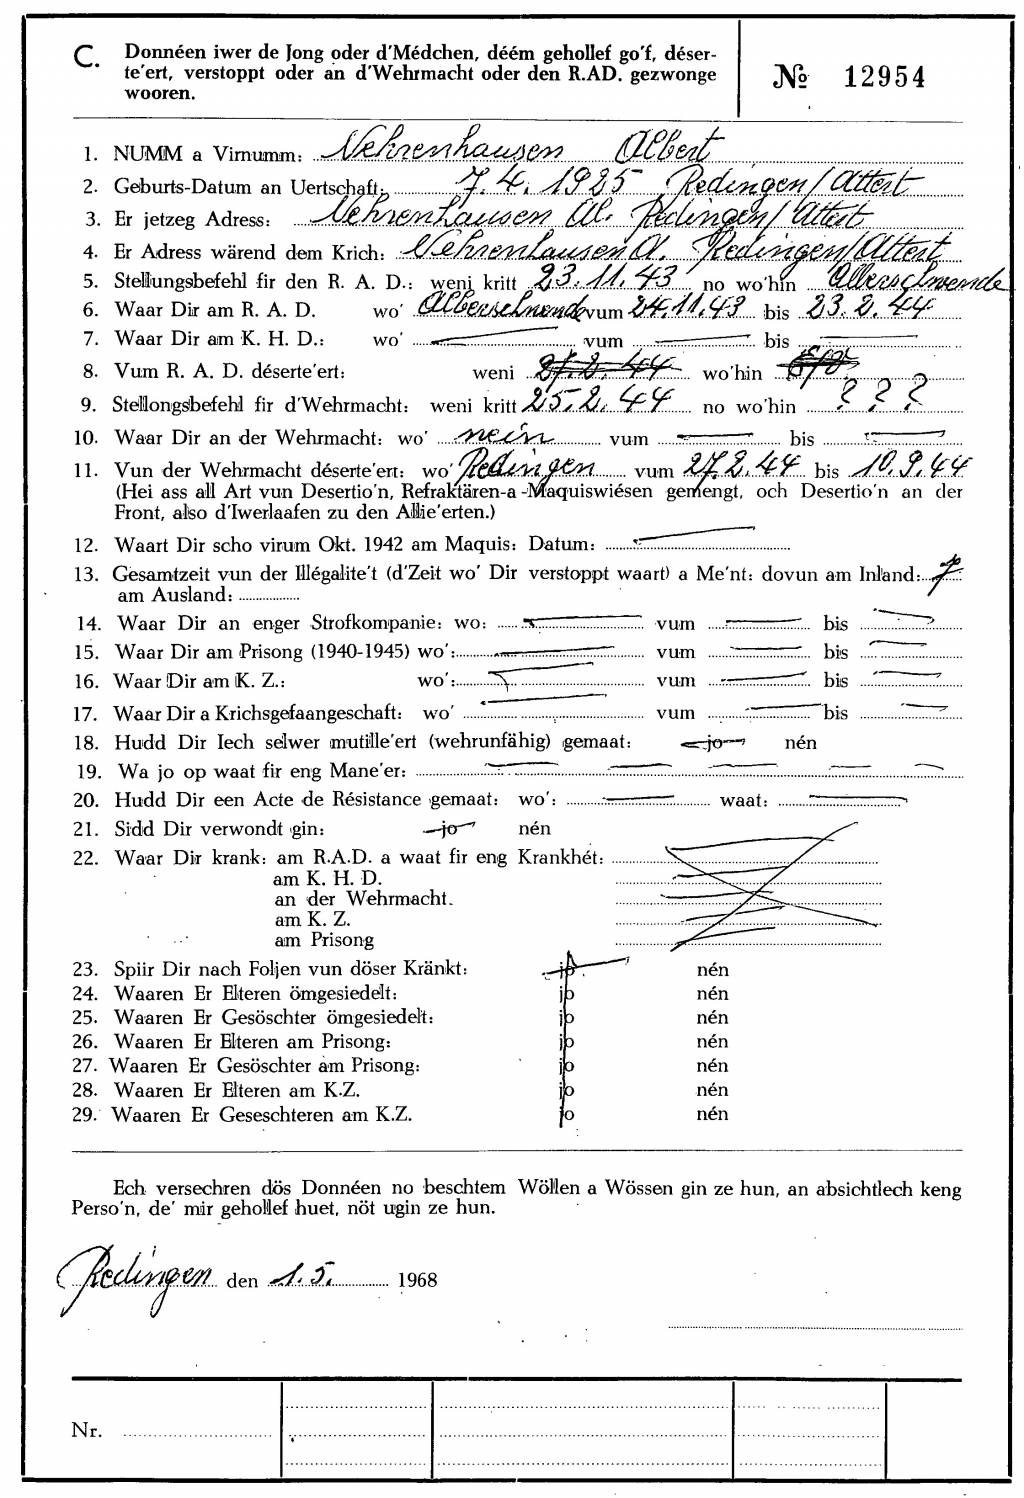 C. Donnéen iwer de Jong oder d'Médchen, déém gehollef go'f, déser-
te'ert, verstoppt oder an d'Wehrmacht oder den R.AD. gezwonge
wooren.
№ 12954
1. NUMM a Virnumm: Nehrenhausen Albert
2. Geburts-Datum an Uertschaft: 7.4.1925 Redingen/Attert
3. Er jetzeg Adress: Nehrenhausen Al. Redingen/Attert
4. Er Adress wärend dem Krich: Nehrenhausen A. Redingen/Attert
5. Stellungsbefehl fir den R. A. D.: weni kritt 23.11.43 no wo'hin Alberschwende
6. Waar Dir am R. A. D. wo' Alberschwende vum 24.11.43 bis 23.2.44
7. Waar Dir am K. H. D.: wo' vum bis
8. Vum R. A. D. déserte'ert: weni 27.2.44 wo'hin
9. Stellongsbefehl fir d'Wehrmacht: weni kritt 25.2.44 no wo'hin ? ? ?
10. Waar Dir an der Wehrmacht: wo' nein vum bis
11. Vun der Wehrmacht déserte'ert: wo' Redingen vum 27.2.44 bis 10.9.44
(Hei ass all Art vun Desertio'n, Refraktären-a -Maquiswiésen gemengt, och Desertio'n an der
Front, also d'Iwerlaafen zu den Allie'erten.)
12. Waart Dir scho virum Okt. 1942 am Maquis: Datum:
13. Gesamtzeit vun der Illégalite't (d'Zeit wo' Dir verstoppt waart) a Me'nt: dovun am Inland: 7
am Ausland:
14. Waar Dir an enger Strofkompanie: wo: vum bis
15. Waar Dir am Prisong (1940-1945) wo': vum bis
16. Waar Dir am K. Z.: wo': vum bis
17. Waar Dir a Krichsgefaangeschaft: wo' vum bis
18. Hudd Dir Iech selwer mutille'ert (wehrunfähig) gemaat: jo nén
19. Wa jo op waat fir eng Mane'er:
20. Hudd Dir een Acte de Résistance gemaat: wo': waat:
21. Sidd Dir verwondt gin: jo nén
22. Waar Dir krank: am R.A.D. a waat fir eng Krankhét:
am K. H. D.
an der Wehrmacht.
am K. Z.
am Prisong
23. Spiir Dir nach Foljen vun döser Kränkt: jo nén
24. Waaren Er Elteren ömgesiedelt: jo nén
25. Waaren Er Gesöschter ömgesiedelt: jo nén
26. Waaren Er Elteren am Prisong: jo nén
27. Waaren Er Gesöschter am Prisong: jo nén
28. Waaren Er Elteren am K.Z. jo nén
29. Waaren Er Geseschteren am K.Z. jo nén
Ech versechren dös Donnéen no beschtem Wöllen a Wössen gin ze hun, an absichtlech keng
Perso'n, de' mir gehollef huet, nöt ugin ze hun.
Redingen den 1.5. 1968
Nr.